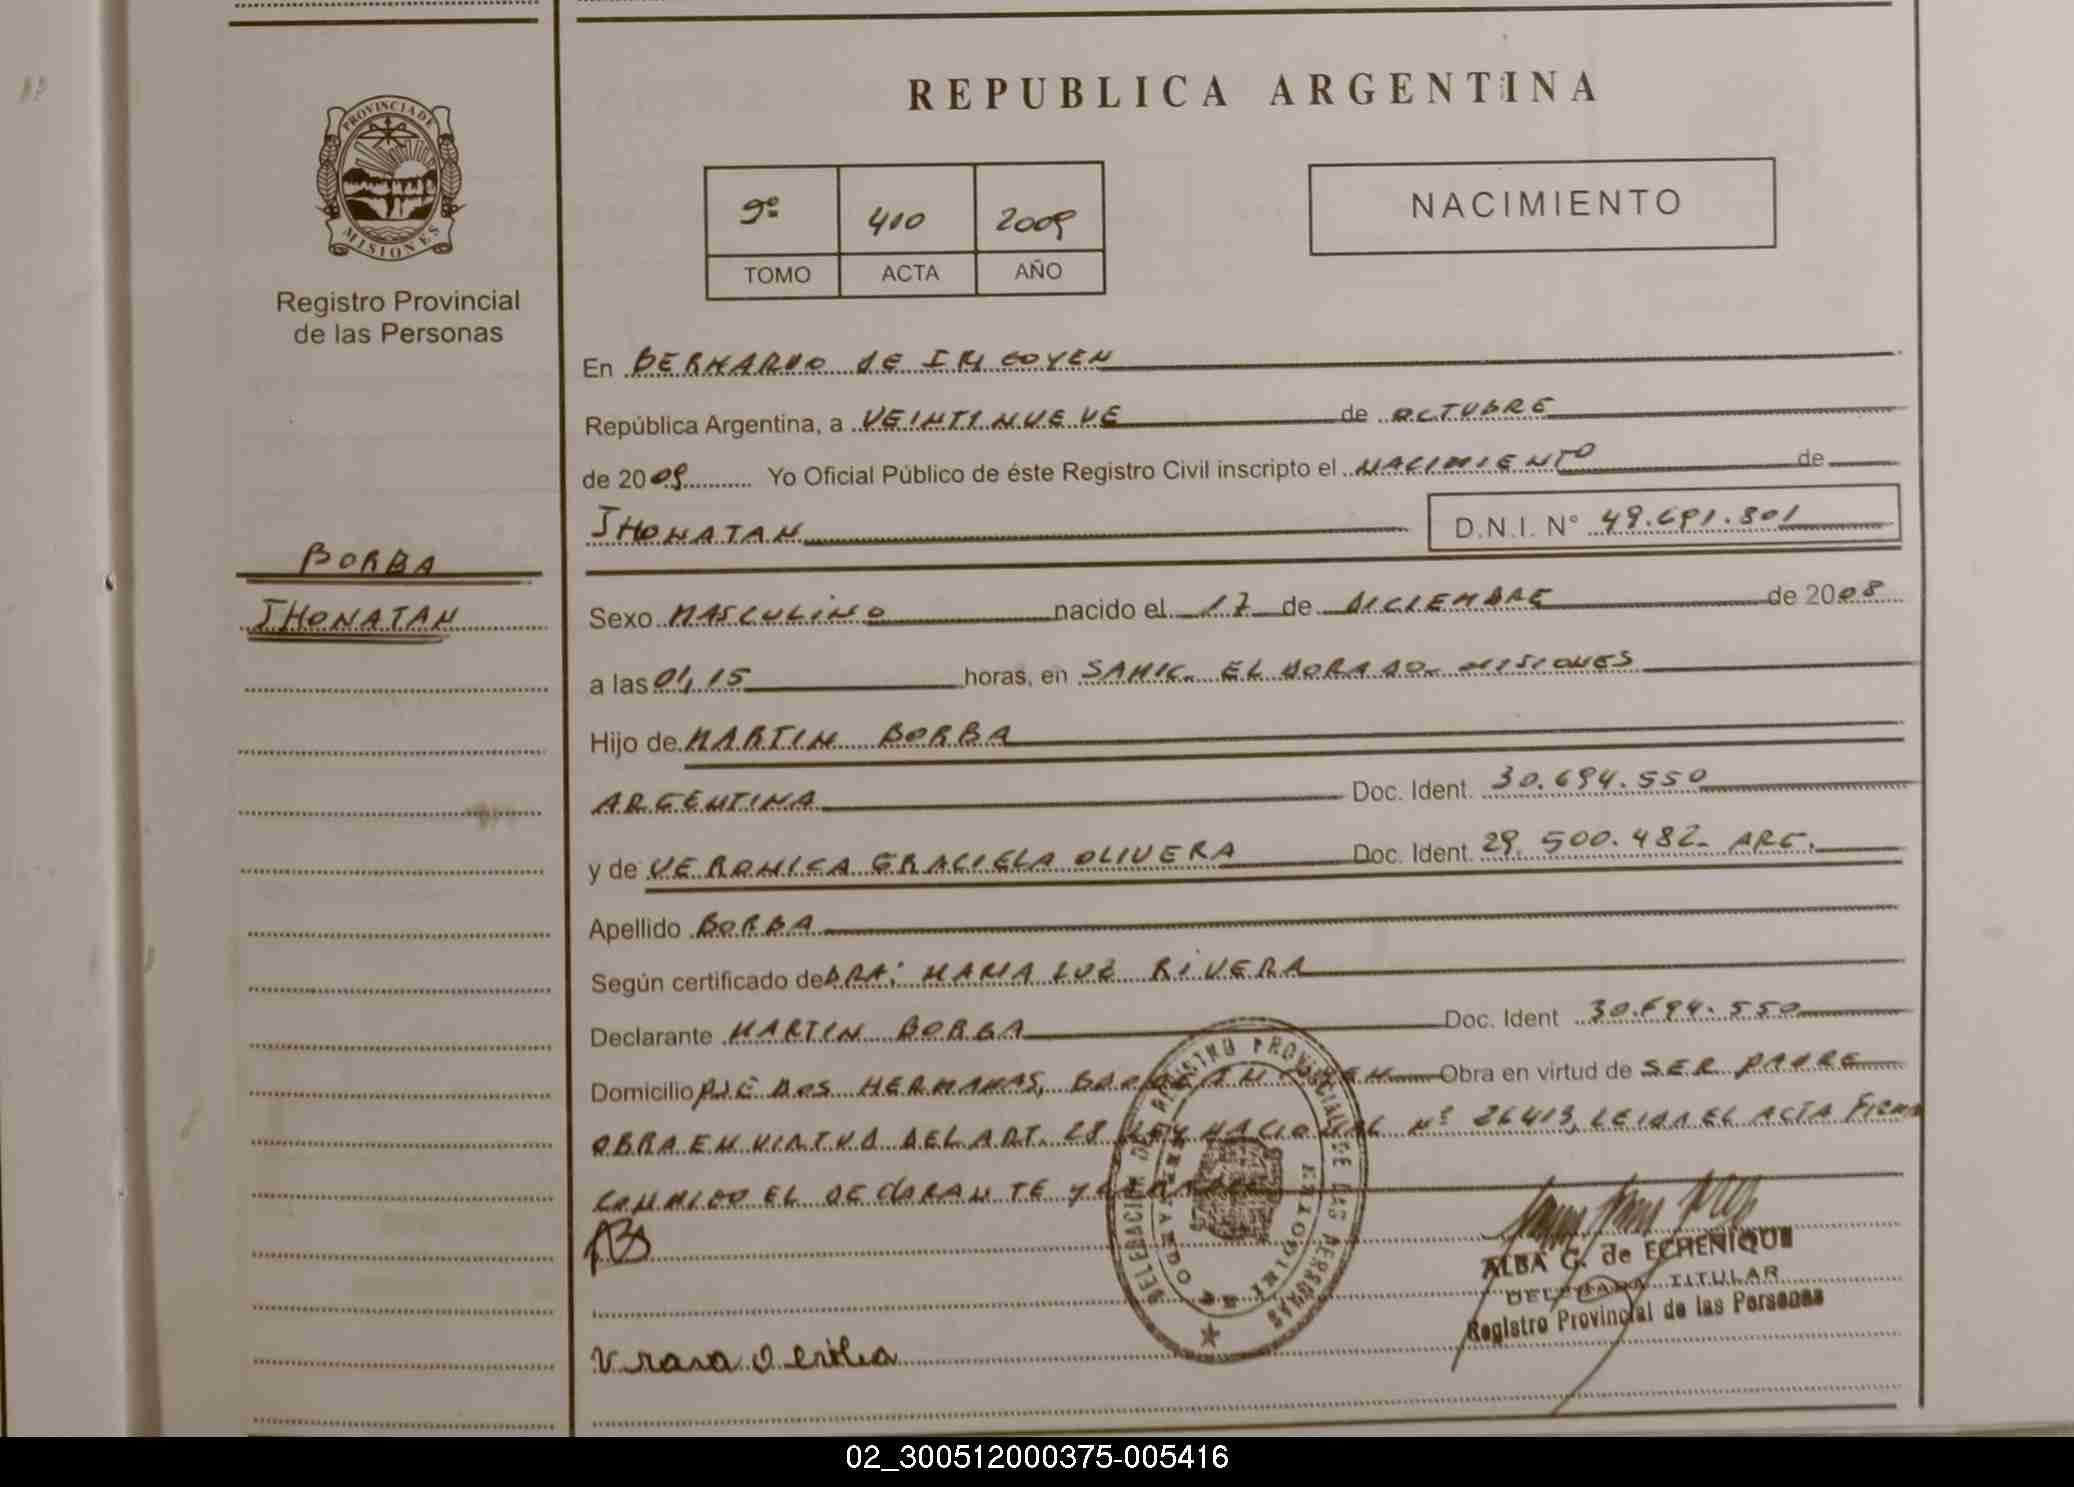 REPUBLICA ARGENTINA
PROVINCIA DE MISIONES
Registro Provincial
de las Personas
9º 410 2009
TOMO ACTA AÑO
NACIMIENTO
En BERNARDO DE IRIGOYEN
República Argentina, a VEINTINUEVE de OCTUBRE
de 2009 Yo Oficial Público de éste Registro Civil inscripto el NACIMIENTO de
JHONATAN D.N.I. Nº 49.691.801
BORBA
JHONATAN
Sexo MASCULINO nacido el 17 de DICIEMBRE de 2008
a las 01,15 horas, en SAMIC. ELDORADO- MISIONES
Hijo de MARTIN BORBA
ARGENTINA Doc. Ident. 30.694.550
y de VERONICA GRACIELA OLIVERA Doc. Ident. 29.500.482- ARG.
Apellido BORBA
Según certificado de DRA: MARIA LUZ RIVERA
Declarante MARTIN BORBA Doc. Ident 30.694.550
Domicilio PJE DOS HERMANAS, Obra en virtud de SER PADRE
OBRA EN VIRTUD DEL ART. 28 LEY NACIONAL Nº 26413, LEIDA EL ACTA FIRMA
CONMIGO EL DECLARANTE Y
DELEGACION DE REGISTRO PROVINCIAL DE LAS PERSONAS
ALBA G. de ECHENIQUE
DELEGADA TITULAR
Registro Provincial de las Personas
02_300512000375-005416